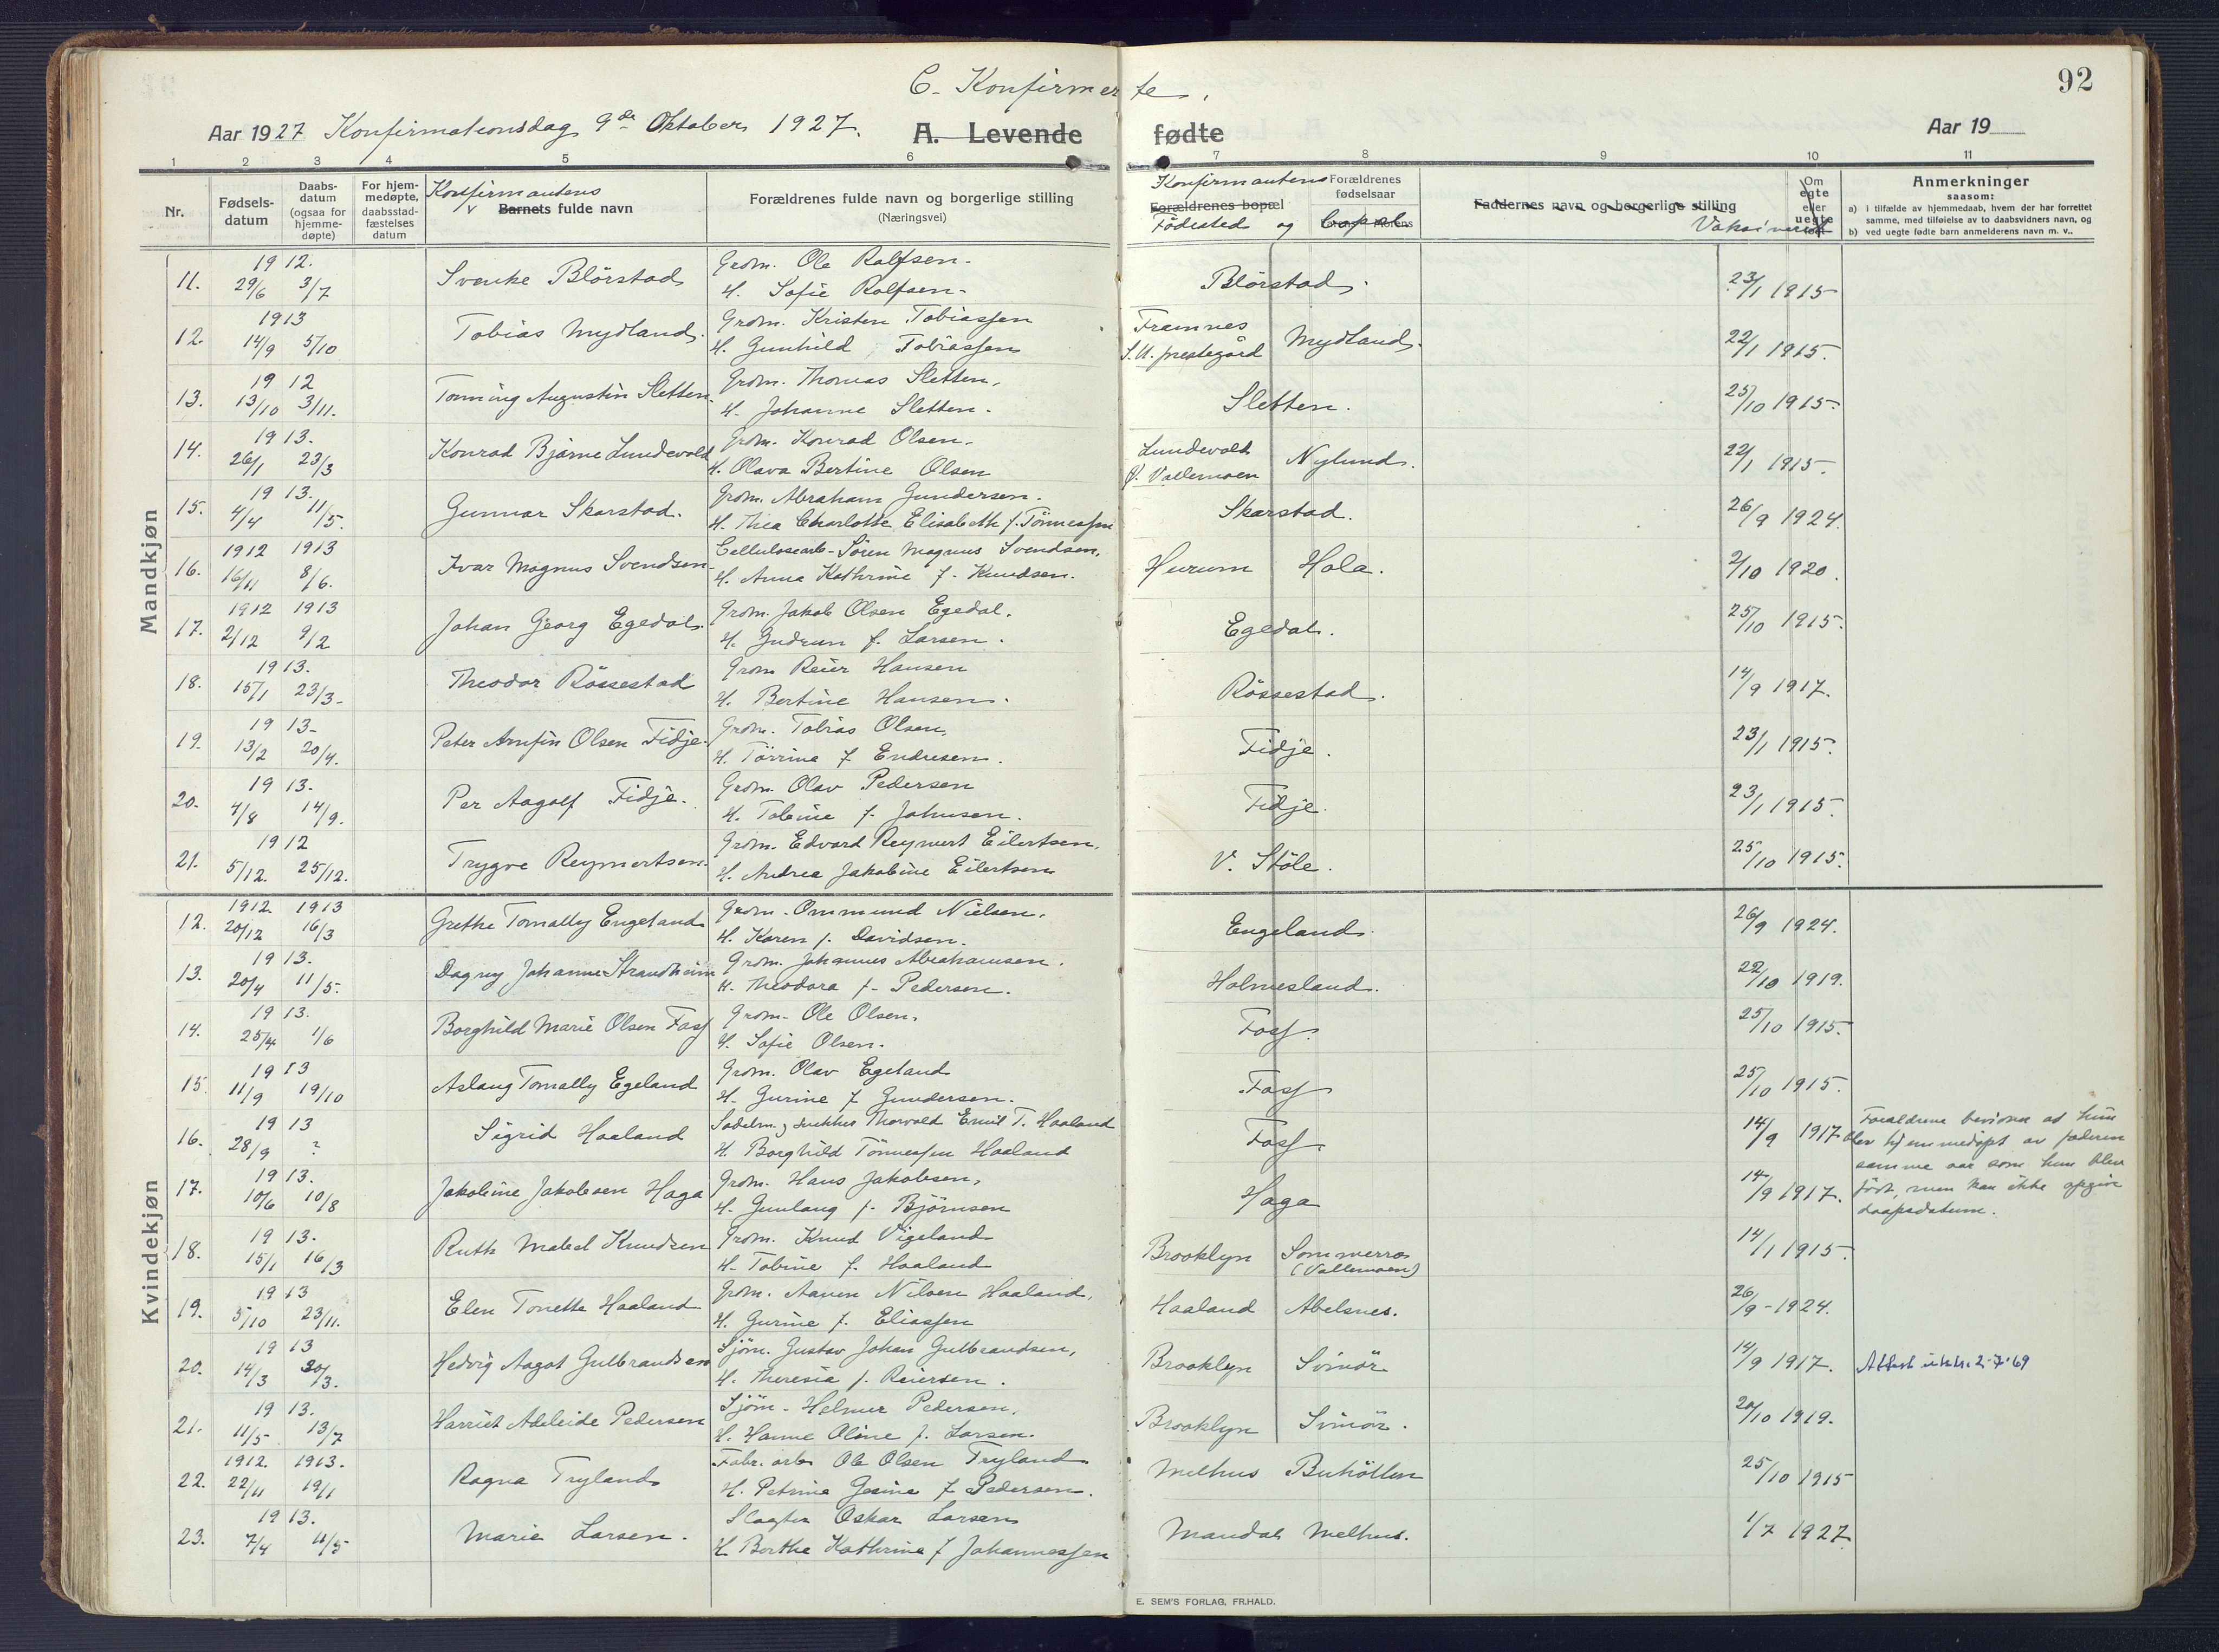 C. Konfirmerte.
92
Aar 1927 Konfirmationsdag 9de Oktober 1927. A. Levende fødte
Aar 19
1 2 3 4 5 6 7 8 9 10 11
Nr.
Fødsels-
datum
Daabs-
datum
(ogsaa for
hjemme-
døpte)
For hjem-
medøpte,
daabsstad-
fæstelses
datum
Konfirmantens
Barnets fulde navn
Forældrenes fulde navn og borgerlige stilling
(Næringsvei)
Konfirmantens
Forældrenes bopæl
Födested og bopæl
Forældrenes
fødselsaar
Faddernes navn og borgerlige stilling
Om
egte
eller
uegte
Anmerkninger
saasom:
a) i tilfælde av hjemmedaab, hvem der har forrettet
samme, med tilføielse av to daabsvidners navn, og
b) ved uegte fødte barn anmelderens navn m. v..
Mandkjøn
11. 1912. 29/6 3/7 Svenke Blörstad Grdm. Ole Rolfsen. H. Sofie Rolfsen. Blörstad. 23/1 1915
12. 1913 14/9 5/10 Tobias Mydland. Grdm. Kristen Tobiassen H. Gunhild Tobiassen Framnes S.U. prestegård Mydland. 22/1 1915.
13. 1912 13/10 3/11. Tonning Augustin Sletten. Grdm. Thomas Sletten. H. Johanne Sletten. Sletten. 25/10 1915.
14. 1913. 26/1 23/3 Konrad Bjarne Lundevold Grdm. Konrad Olsen. H. Olava Bertine Olsen Lundevold Ø. Vallemoen Nylund. 22/1 1915.
15. 1913. 4/4 11/5. Gunnar Skarstad. Grdm. Abraham Gundersen. H. Thea Charlotte Elisabeth f. Tönnessen Skarstad. 26/9 1924.
16. 1912 1913 16/11 8/6. Ivar Magnus Svendsen Cellulosearb. Sören Magnus Svendsen, H. Anna Kathrine f. Knudsen. Hurum Hola. 2/10 1920.
17. 1912 1913 2/12 9/2 Johan Georg Egedal. Grdm. Jakob Olsen Egedal. H. Gudrun f. Larsen. Egedal. 25/10 1915.
18. 1913. 15/1 23/3 Theodor Rössestad Grdm Reier Hansen H. Bertine Hansen. Rössestad. 14/9 1917.
19. 1913 13/2 20/4. Peter Arnfin Olsen Fidje. Grdm. Tobias Olsen, H. Törrine f Endresen. Fidje. 23/1 1915.
20. 1913. 4/8 14/9. Per Aagolf Fidje. Grdm. Olav Pedersen H. Tobine f. Johnsen. Fidje. 23/1 1915.
21. 1912 5/12. 25/12. Trygve Reymertsen. Grdm. Edvard Reymert Eilertsen, H. Andrea Jakobine Eilertsen V. Stöle. 25/10 1915.
Kvindekjøn
12. 1912. 1913 20/12 16/3 Grethe Tomally Engeland Grdm. Ommund Nielsen. H. Karen f. Davidsen. Engeland. 26/9 1924.
13. 1913. 20/4 11/5. Dagny Johanne Strandheim Grdm. Johannes Abrahamsen. H. Theodora f. Pedersen. Holmesland. 22/10 1919.
14. 1913. 25/4 1/6 Borghild Marie Olsen Foss Grdm. Ole Olsen. H. Sofie Olsen. Foss. 25/10 1915.
15. 1913 11/9 19/10 Aslaug Tomally Egeland Grdm. Olav Egeland H. Gurine f Gundersen. Foss 25/10 1915.
16. 1913 28/9 ? Sigrid Haaland Sadelm. Thorvald Emil T. Haaland H. Borghild Tönnessen Haaland Foss. 14/9 1917 Foraldrene bevisna at hun
blev hjemmedöpt av faderen
samme aar som hun blev
född, men kan ikke opgive
daapsdatum.
17. 1913. 10/6 10/8 Jakobine Jakobsen Haga Grdm. Hans Jakobsen, H. Gunlaug f. Björnsen Haga 14/9 1917.
18. 1913. 15/1 16/3 Ruth Mabel Knudsen Grdm. Knud Vigeland H. Tobine f. Haaland Brooklyn Sommerro (Vallemoen) 14/1 1915.
19. 1913 5/10 23/11. Elen Tonette Haaland Grdm. Aanen Nilsen Haaland, H. Gurine f. Eliassen Haaland Abelsnes. 26/9 1924.
20. 1913 14/3 30/3. Hedvig Aagot Gulbrandsen Sjöm. Gustav Johan Gulbrandsen, H. Theresia f. Reiersen. Brooklyn Svinör 14/9 1917. Attest utst. 2-7-69
21. 1913. 11/5 13/7 Harriet Adeleide Pedersen Sjöm. Helmer Pedersen, H. Hanne Oline f. Larsen. Brooklyn Svinör. 20/10 1919.
22. 1912. 1913. 22/11 19/1 Ragna Tryland Fabr. arb. Ole Olsen Tryland H. Petrine Gesine f Pedersen. Melhus Buhöllen 25/10 1915
23. 1913. 7/4 11/5 Marie Larsen. Slagter Oskar Larsen H. Berthe Kathrine f Johannessen Mandal Melhus. 1/7 1927
E. SEM'S FORLAG, FR.HALD.